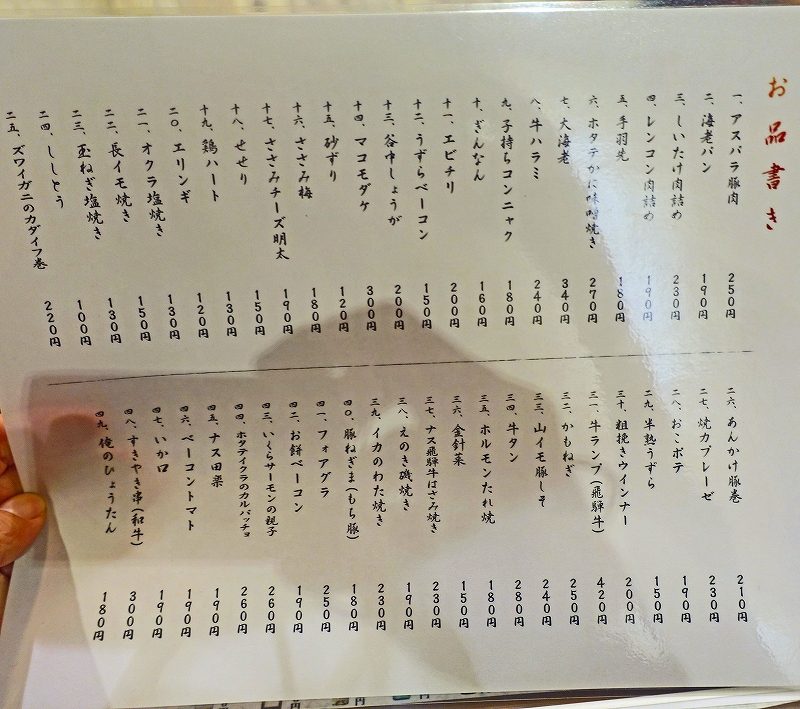 お品書き
一、アスパラ豚肉 250円
二、海老パン 190円
三、しいたけ肉詰め 230円
四、レンコン肉詰め 190円
五、手羽先 180円
六、ホタテかに味噌焼き 270円
七、大海老 340円
八、牛ハラミ 240円
九、子持ちコンニャク 180円
十、ぎんなん 160円
十一、エビチリ 200円
十二、うずらベーコン 150円
十三、谷中しょうが 200円
十四、マコモダケ 300円
十五、砂ずり 120円
十六、ささみ梅 180円
十七、ささみチーズ明太 190円
十八、せせり 150円
十九、鶏ハート 130円
二〇、エリンギ 120円
二一、オクラ塩焼き 130円
二二、長イモ焼き 150円
二三、玉ねぎ塩焼き 130円
二四、ししとう 100円
二五、ズワイガニのカダイフ巻 220円
二六、あんかけ豚巻 210円
二七、焼カプレーゼ 230円
二八、おこポテ 190円
二九、半熟うずら 150円
三十、粗挽きウインナー 200円
三一、牛ランプ(飛騨牛) 420円
三二、かもねぎ 250円
三三、山イモ豚しそ 240円
三四、牛タン 280円
三五、ホルモンたれ焼 180円
三六、金針菜 150円
三七、ナス飛騨牛はさみ焼き 230円
三八、えのき磯焼き 190円
三九、イカのわた焼き 230円
四〇、豚ねぎま(もち豚) 180円
四一、フォアグラ 250円
四二、お餅ベーコン 190円
四三、いくらサーモンの親子 260円
四四、ホタテイクラのカルパッチョ 260円
四五、ナス田楽 190円
四六、ベーコントマト 190円
四七、いか口 190円
四八、すきやき串(和牛) 300円
四九、俺のひょうたん 180円